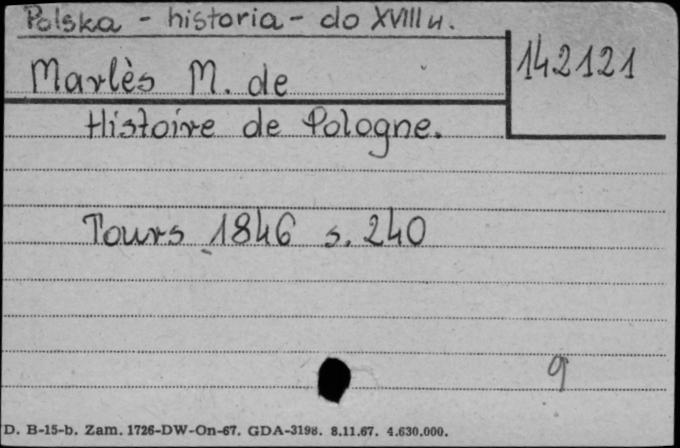 Polska - historia - do XVIII w.
142121
Marlès M. de
Histoire de Pologne.
Tours 1846 s. 240
9
D. B-15-b. Zam. 1726-DW-On-67. GDA-3198. 8.11.67. 4.630.000.